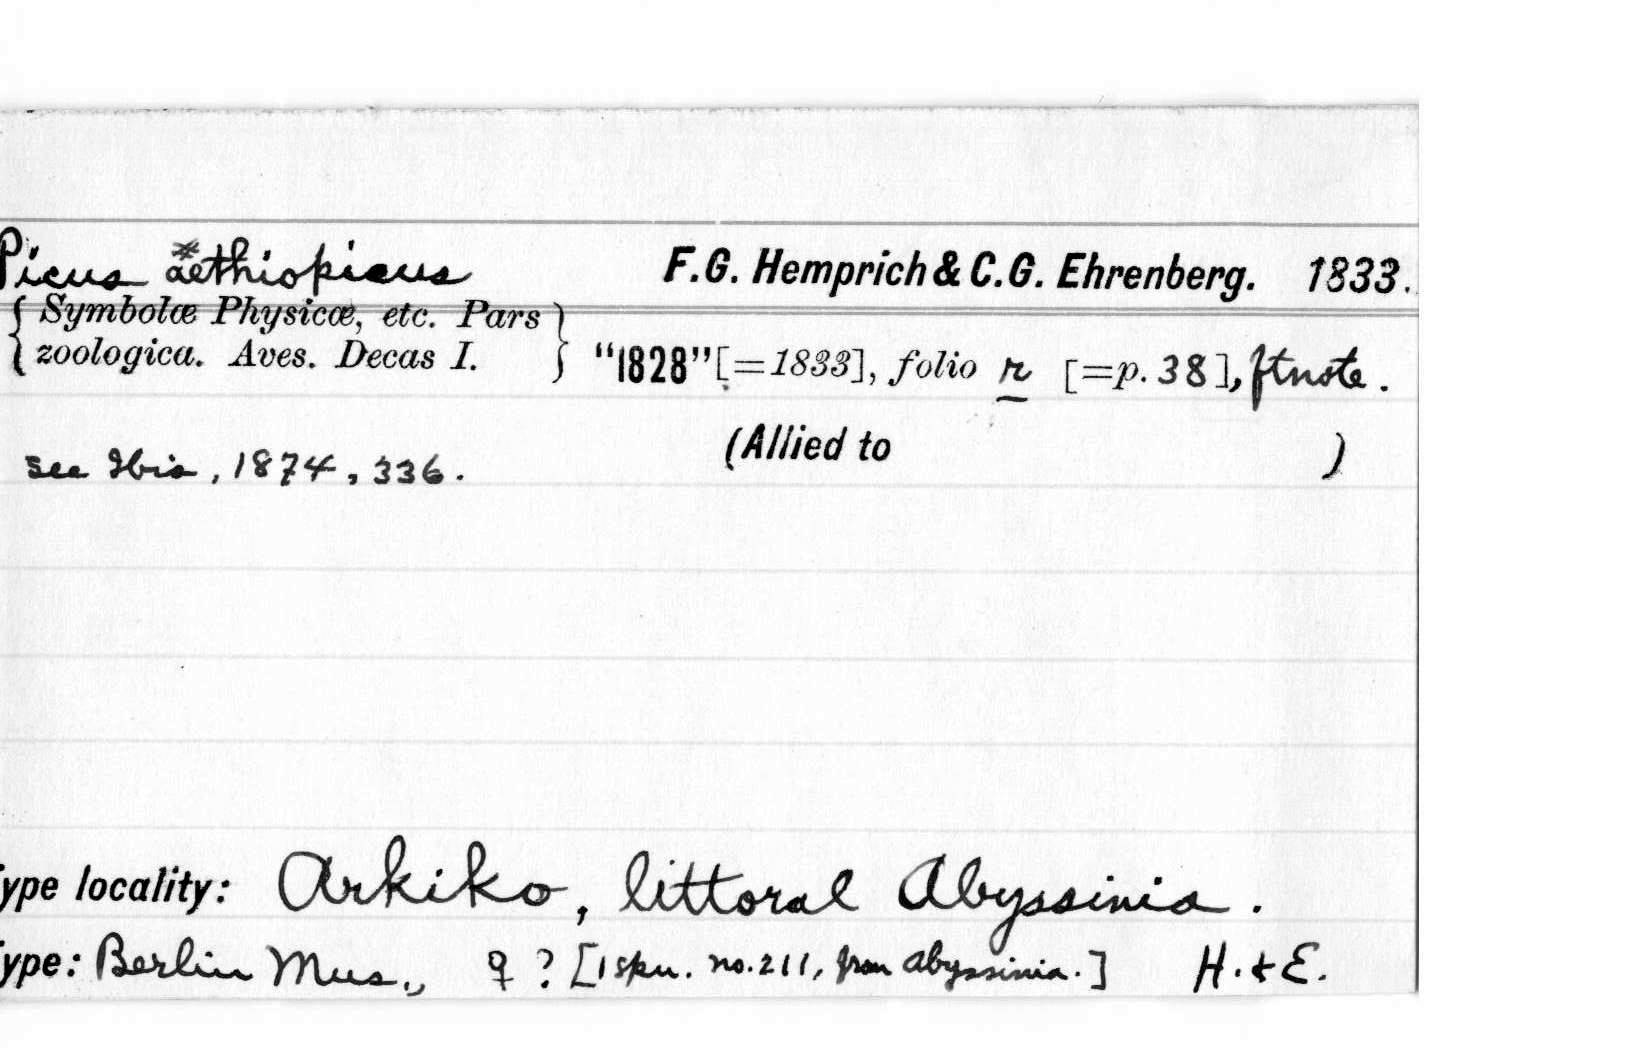 Picus aethiopicus F.G. Hemprich & C.G. Ehrenberg. 1833.
{ Symbolæ Physicæ, etc. Pars }
{ zoologica. Aves. Decas I. } "1828" [=1833], folio r [=p. 38], ftnote.
(Allied to )
see Ibis, 1874, 336.
ype locality: Arkiko, littoral Abyssinia.
ype: Berlin Mus., ♀ ? [1 spn. no. 211, from Abyssinia.] H. & E.